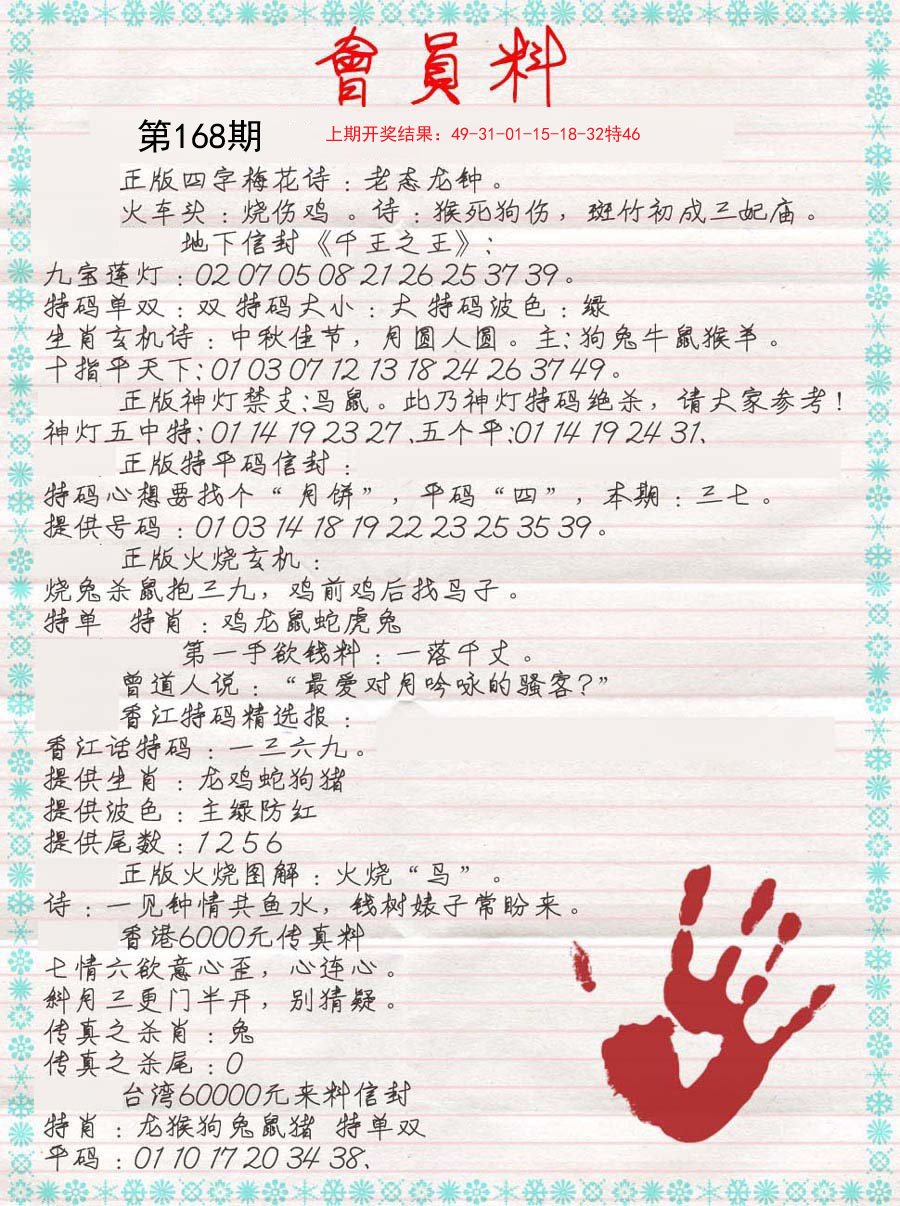 會員料
第168期 上期开奖结果：49-31-01-15-18-32特46
正版四字梅花诗：老态龙钟。
火车头：烧伤鸡。诗：猴死狗伤，斑竹初成三妃庙。
地下信封《千王之王》：
九宝莲灯：02 07 05 08 21 26 25 37 39。
特码单双：双 特码大小：大 特码波色：绿
生肖玄机诗：中秋佳节，月圆人圆。主：狗兔牛鼠猴羊。
十指平天下：01 03 07 12 13 18 24 26 37 49。
正版神灯禁支：鸟鼠。此乃神灯特码绝杀，请大家参考！
神灯五中特：01 14 19 23 27、五个平：01 14 19 24 31、
正版特平码信封：
特码心想要找个“月饼”，平码“四”，本期：三七。
提供号码：01 03 14 18 19 22 23 25 35 39。
正版火烧玄机：
烧兔杀鼠抱三九，鸡前鸡后找马子。
特单 特肖：鸡龙鼠蛇虎兔
第一手欲钱料：一落千丈。
曾道人说：“最爱对月吟咏的骚客？”
香江特码精选报：
香江话特码：一三六九。
提供生肖：龙鸡蛇狗猪
提供波色：主绿防红
提供尾数：1 2 5 6
正版火烧图解：火烧“鸟”。
诗：一见钟情共鱼水，钱树婊子常盼来。
香港6000元传真料
七情六欲意心歪，心连心。
斜月三更门半开，别猜疑。
传真之杀肖：兔
传真之杀尾：0
台湾60000元来料信封
特肖：龙猴狗兔鼠猪 特单双
平码：01 10 17 20 34 38、